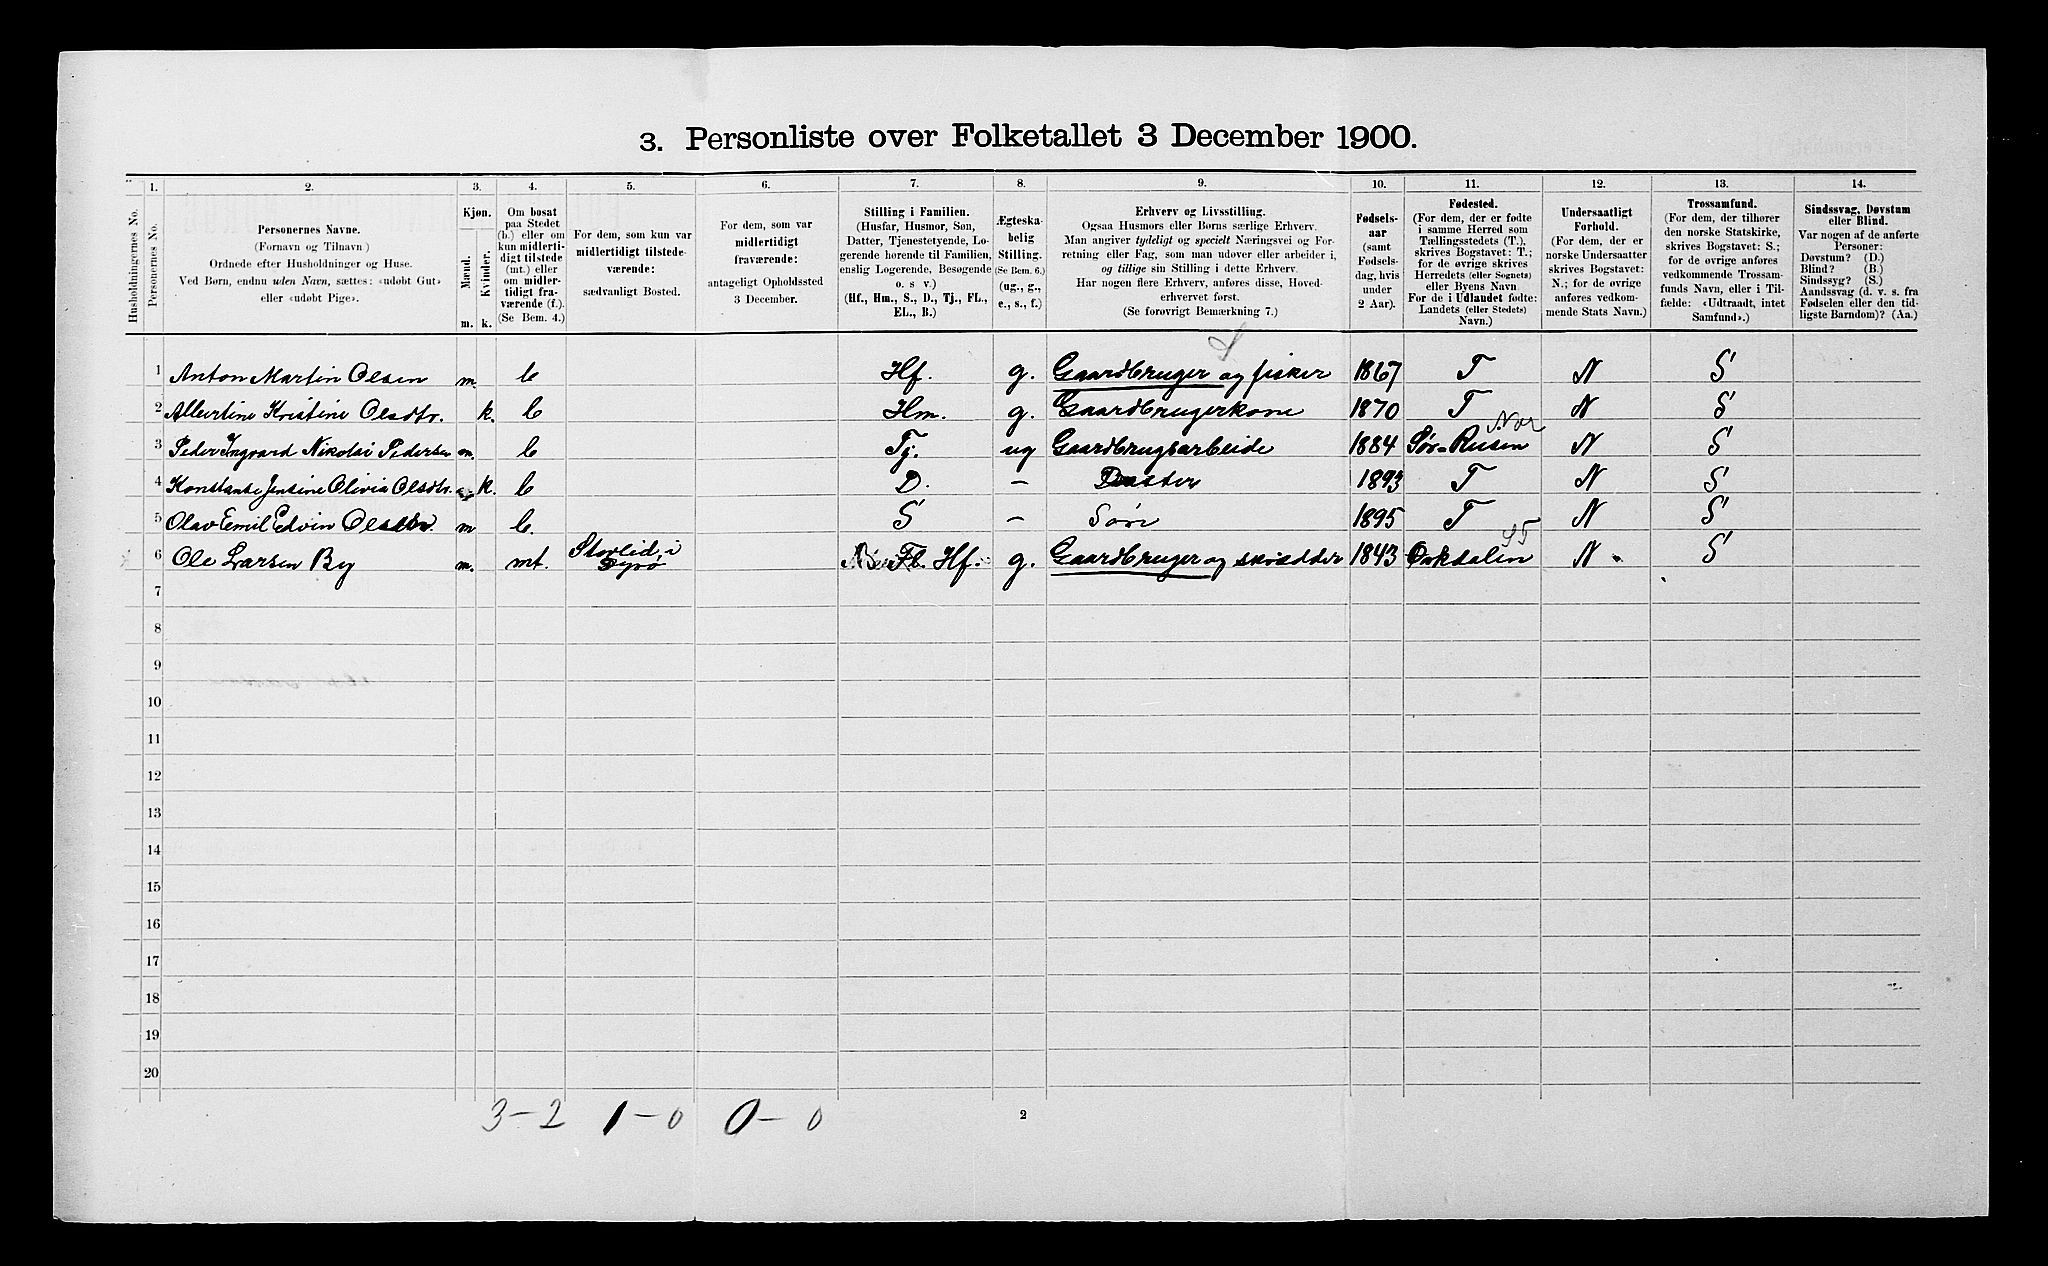 3. Personliste over Folketallet 3 December 1900.
Husholdningernes No.
1. Personernes No.
2. Personernes Navne. (Fornavn og Tilnavn) Ordnede efter Husholdninger og Huse. Ved Børn, endnu uden Navn, sættes: «udøbt Gut» eller «udøbt Pige».
3. Kjøn. Mænd. m. Kvinder. k.
4. Om bosat paa Stedet (b.) eller om kun midlertidigt tilstede (mt.) eller om midlertidigt fraværende (f.). (Se Bem. 4.)
5. For dem, som kun var midlertidigt tilstedeværende: sædvanligt Bosted.
6. For dem, som var midlertidigt fraværende: antageligt Opholdssted 3 December.
7. Stilling i Familien. (Husfar, Husmor, Søn, Datter, Tjenestetyende, Logerende hørende til Familien, enslig Logerende, Besøgende o. s v.) (Hf., Hm., S., D., Tj., FL., EL., B.)
8. Ægteskabelig Stilling. (Se Bem. 6.) (ug., g., e., s., f.)
9. Erhverv og Livsstilling. Ogsaa Husmors eller Børns særlige Erhverv. Man angiver tydeligt og specielt Næringsvei og Forretning eller Fag, som man udøver eller arbeider i, og tillige sin Stilling i dette Erhverv. Har nogen flere Erhverv, anføres disse, Hovederhvervet først. (Se forøvrigt Bemærkning 7.)
10. Fødselsaar (samt Fødselsdag, hvis under 2 Aar).
11. Fødested. (For dem, der er fødte i samme Herred som Tællingsstedets (T.), skrives Bogstavet: T.; for de øvrige skrives Herredets (eller Sognets) eller Byens Navn For de i Udlandet fødte: Landets (eller Stedets) Navn.)
12. Undersaatligt Forhold. (For dem, der er norske Undersaatter skrives Bogstavet: N.; for de øvrige anføres vedkommende Stats Navn.)
13. Trossamfund. (For dem, der tilhører den norske Statskirke, skrives Bogstavet: S.; for de øvrige anføres vedkommende Trossamfunds Navn, eller i Tilfælde: «Udtraadt, intet Samfund».)
14. Sindssvag, Døvstum eller Blind. Var nogen af de anførte Personer: Døvstum? (D.) Blind? (B.) Sindssyg? (S.) Aandssvag (d. v. s. fra Fødselen eller den tidligste Barndom)? (Aa.)
1 Anton Martin Olsen m. b Hf. g. Gaardbruger og fisker 1867 T N S
2 Albertine Kristine Olsdtr. k. b Hm. g. Gaardbrugerkone 1870 T N S
3 Peder Ingvard Nikolai Pedersen m. b Tj. ug Gaardbrugsarbeide 1884 Sør-Reisen N S
4 Konstanse Jensine Olivia Olsdtr. k. b D. – Datter 1893 T N S
5 Olav Emil Edvin Olsen m b. S – Søn 1895 T N S
6 Ole Larsen By m. mt. Hf. g. Gaardbruger og 1843 Orkdalen N S
7
8
9
10
11
12
13
14
15
16
17
18
19
20
3-2 1-0 0-0
2